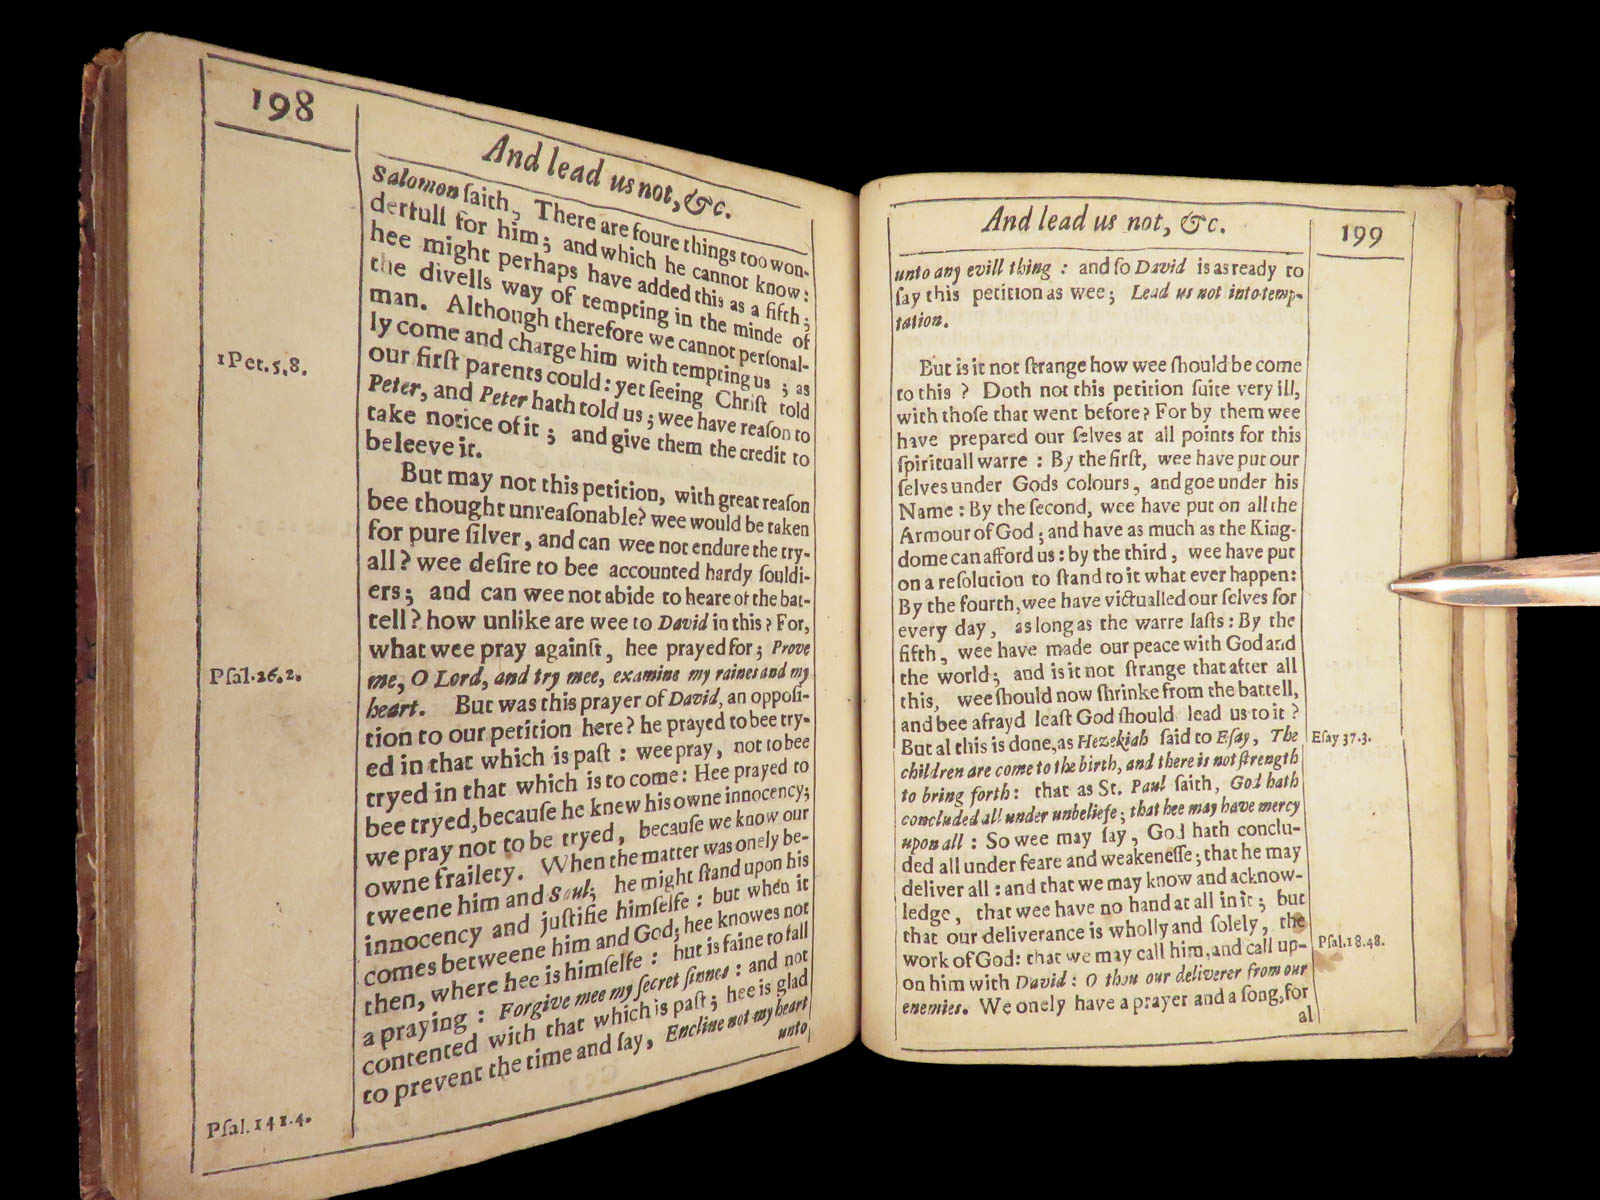 198
And lead us not, &c.
Salomon ſaith, There are foure things too won-
derfull for him; and which he cannot know:
hee might perhaps have added this as a fifth;
the divells way of tempting in the minde of
man. Although therefore we cannot perſonal-
ly come and charge him with tempting us; as
our firſt parents could: yet ſeeing Chriſt told
1 Pet. 5. 8.
Peter, and Peter hath told us; wee have reaſon to
take notice of it; and give them the credit to
beleeve it.
But may not this petition, with great reaſon
bee thought unreaſonable? wee would be taken
for pure ſilver, and can wee not endure the try-
all? wee deſire to bee accounted hardy ſouldi-
ers; and can wee not abide to heare of the bat-
tell? how unlike are wee to David in this? For,
what wee pray againſt, hee prayed for; Prove
Pſal. 26. 2.
me, O Lord, and try mee, examine my raines and my
heart. But was this prayer of David, an oppoſi-
tion to our petition here? he prayed to bee try-
ed in that which is paſt: wee pray, not to bee
tryed in that which is to come: Hee prayed to
bee tryed, becauſe he knew his owne innocency;
we pray not to be tryed, becauſe we know our
owne frailety. When the matter was onely be-
tweene him and Saul; he might ſtand upon his
innocency and juſtifie himſelfe: but when it
comes betweene him and God; hee knowes not
then, where hee is himſelfe: but is faine to fall
a praying: Forgive mee my ſecret ſinnes: and not
contented with that which is paſt; hee is glad
to prevent the time and ſay, Encline not my heart
Pſal. 141. 4.
unto
And lead us not, &c.
199
unto any evill thing: and ſo David is as ready to
ſay this petition as wee; Lead us not into temp-
tation.
But is it not ſtrange how wee ſhould be come
to this? Doth not this petition ſuite very ill,
with thoſe that went before? For by them wee
have prepared our ſelves at all points for this
ſpirituall warre: By the firſt, wee have put our
ſelves under Gods colours, and goe under his
Name: By the ſecond, wee have put on all the
Armour of God; and have as much as the King-
dome can afford us: by the third, wee have put
on a reſolution to ſtand to it what ever happen:
By the fourth, wee have victualled our ſelves for
every day, as long as the warre laſts: By the
fifth, wee have made our peace with God and
the world; and is it not ſtrange that after all
this, wee ſhould now ſhrinke from the battell,
and bee afrayd leaſt God ſhould lead us to it?
But al this is done, as Hezekiah ſaid to Eſay, The
Eſay 37. 3.
children are come to the birth, and there is not ſtrength
to bring forth: that as St. Paul ſaith, God hath
concluded all under unbeliefe; that hee may have mercy
upon all: So wee may ſay, God hath conclu-
ded all under feare and weakeneſſe; that he may
deliver all: and that we may know and acknow-
ledge, that wee have no hand at all in it; but
that our deliverance is wholly and ſolely, the
work of God: that we may call him, and call up-
Pſal. 18. 48.
on him with David: O thou our deliverer from our
enemies. We onely have a prayer and a ſong, for
al